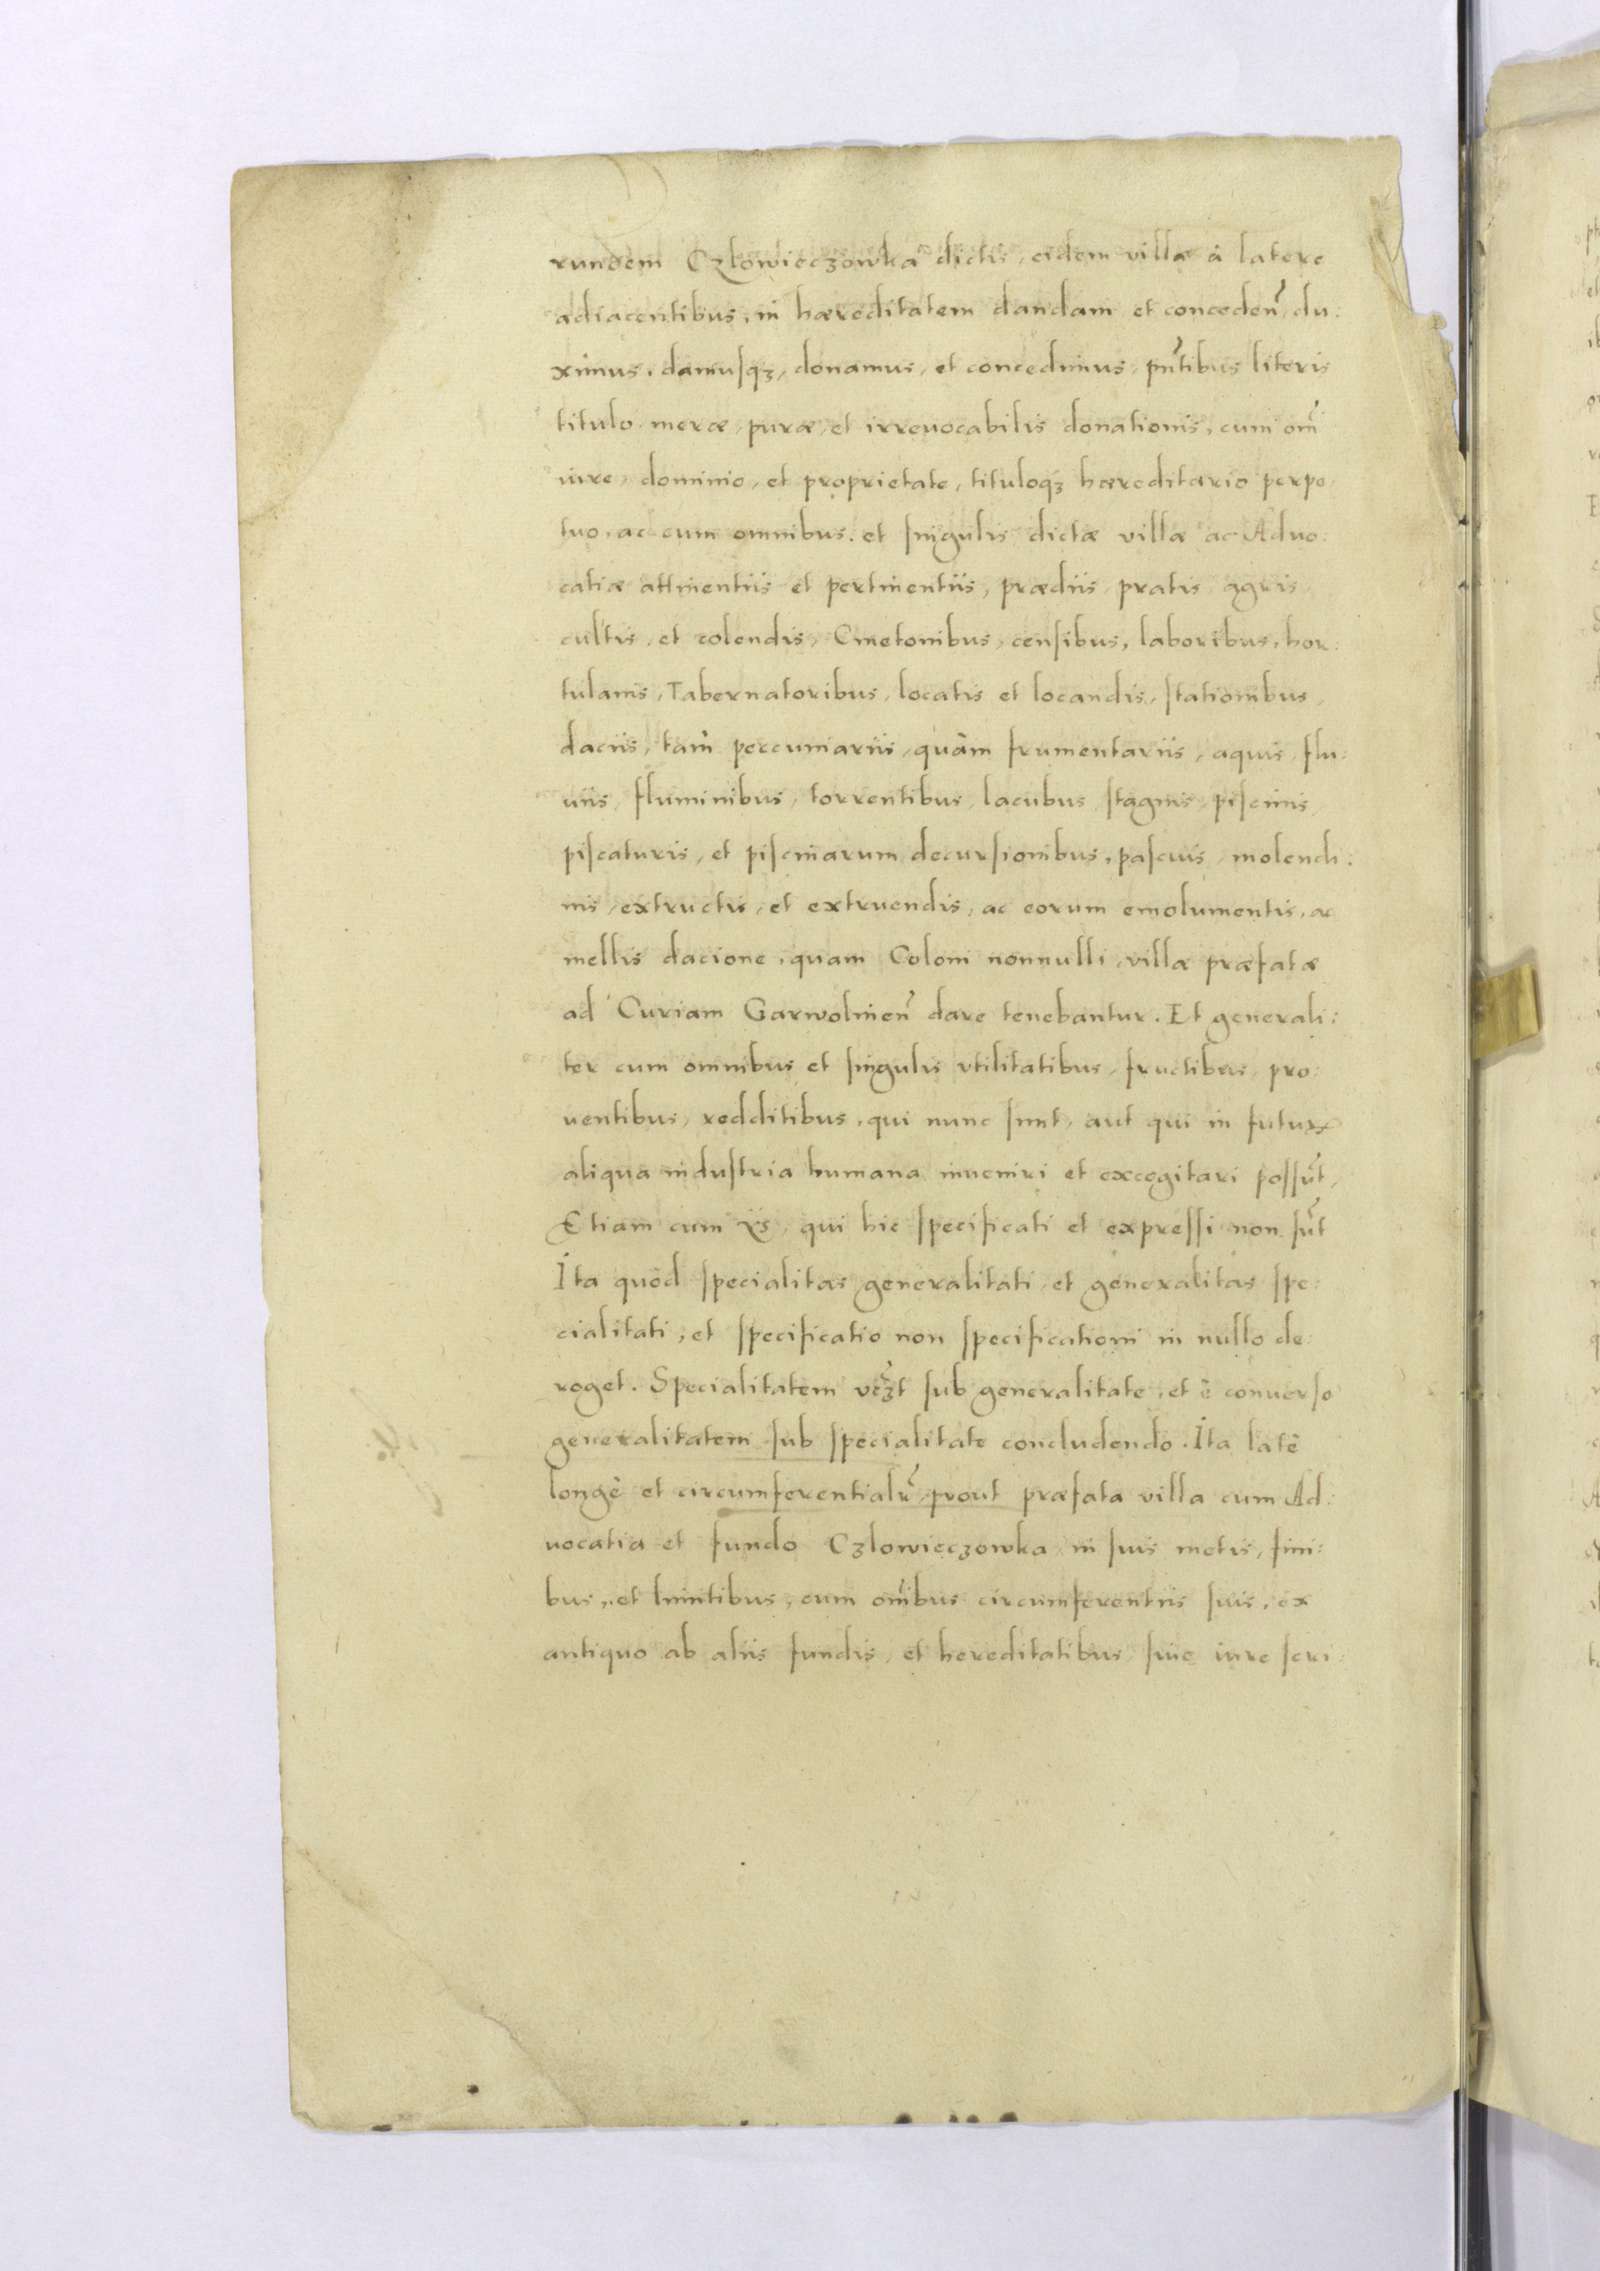 rundem Człowieczowka dictis, eidem villæ à latere
adiacentibus, in hæreditatem dandam et conceden̄, du:
ximus, damusqʒ, donamus, et concedimus, pn̄tibus literis
titulo meræ, puræ, et irreuocabilis donationis, cum om̄i
iure, dominio, et proprietate, tituloqʒ hæreditario perpe,
tuo, ac cum omnibus, et singulis dictæ villæ ac Aduo:
catiæ attinentiis et pertinentiis, prædiis, pratis, agris,
cultis, et colendis, Cmetonibus, censibus, laboribus, hor:
tulanis, Tabernatoribus, locatis et locandis, stationibus,
daciis, tam̀ peccuniariis, quàm frumentariis, aquis, flu:
uiis, fluminibus, torrentibus, lacubus, stagnis, piscinis,
piscaturis, et piscinarum decursionibus, pascuis, molendi:
nis, extructis, et extruendis, ac eorum emolumentis, ac
mellis dacione, quam Coloni nonnulli villæ præfatæ
ad Curiam Garwolinen̄ dare tenebantur. Et generali:
ter cum omnibus et singulis vtilitatibus, fructibus, pro:
uentibus, redditibus, qui nunc sunt, aut qui in futurꝝ
aliqua industria humana inueniri et excogitari possūt,
Etiam cum ÿs, qui hic specificati et expressi non sūt
Ita quòd specialitas generalitati, et generalitas spe:
cialitati, et specificatio non specificationi in nullo de:
roget. Specialitatem vēʒt sub generalitate, et è conuerso
generalitatem sub specialitate concludendo. Ita latè
longè et circumferentialr̄, prout præfata villa cum Ad:
uocatia et fundo Czlowieczowka in suis metis, fini:
bus, et limitibus, cum om̄ibus circumferentiis suis, ex
antiquo ab aliis fundis, et hereditatibus, siue iure scri: